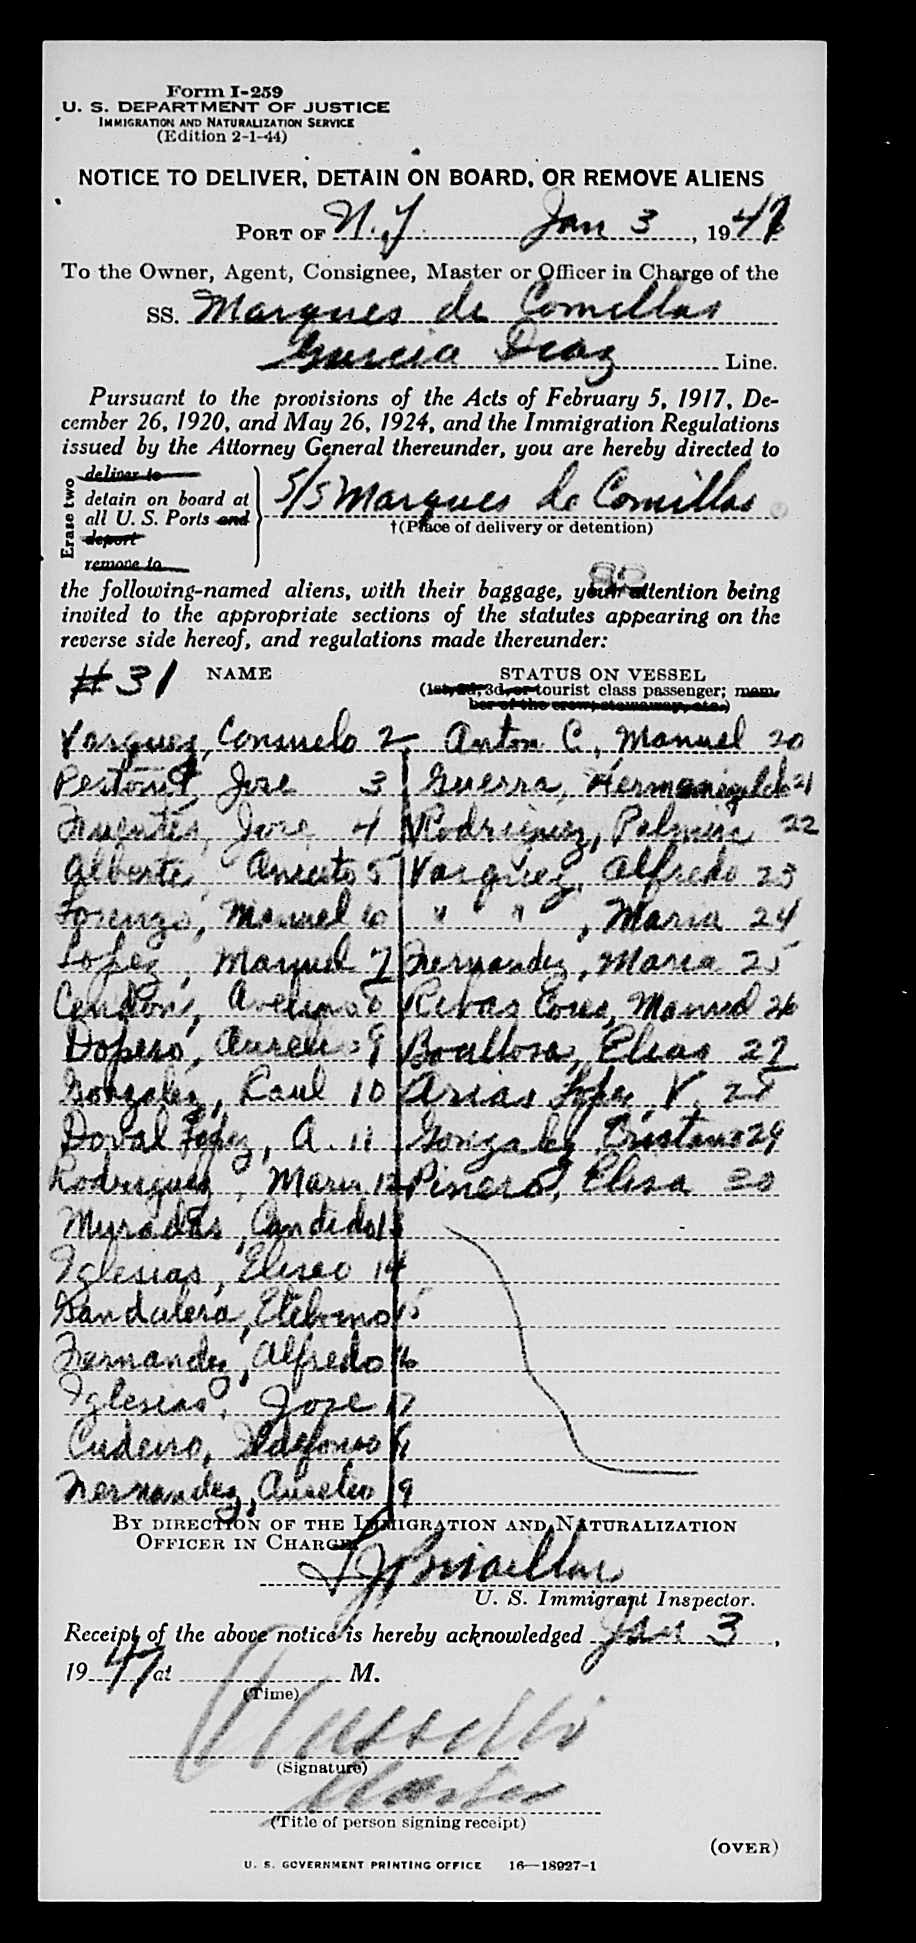 Form I-259
U. S. DEPARTMENT OF JUSTICE
IMMIGRATION AND NATURALIZATION SERVICE
(Edition 2-1-44)
NOTICE TO DELIVER, DETAIN ON BOARD, OR REMOVE ALIENS
PORT OF N.Y. Jan 3, 1947
To the Owner, Agent, Consignee, Master or Officer in Charge of the
SS. Marques de Comillas
Garcia Diaz Line.
Pursuant to the provisions of the Acts of February 5, 1917, De-
cember 26, 1920, and May 26, 1924, and the Immigration Regulations
issued by the Attorney General thereunder, you are hereby directed to
Erase two
deliver to
detain on board at
all U. S. Ports and
deport
remove to
S/S Marques de Comillas
†(Place of delivery or detention)
the following-named aliens, with their baggage, your attention being
invited to the appropriate sections of the statutes appearing on the
reverse side hereof, and regulations made thereunder:
#31 NAME STATUS ON VESSEL
(1st, 2d, 3d, or tourist class passenger; mem-
ber of the crew, stowaway, etc.)
Vasquez, Consuelo 2 Anton C., Manuel 20
Jose 3 Guerra, 21
Fuentes, Jose 4 Rodriguez, 22
Alberte, Aniceto 5 Vasquez, Alfredo 23
Lorenzo, Manuel 6 " " , Maria 24
Lopez, Manuel 7 Fernandez, Maria 25
Cendon, Avelino 8 Rivas Manuel 26
Dopeso, Aurelio 9 Boullosa, Elias 27
Gonzalez, Raul 10 Arias Lopez, V. 28
Doval Lopez, A. 11 Gonzalez, 29
Rodriguez, Maria 12 Pineiro, Elisa 30
Muradas, Candido 13
Iglesias, Eliseo 14
15
Fernandez, Alfredo 16
Iglesias, Jose 17
Cudeiro, Ildefonso
Fernandez, Aurelio 19
BY DIRECTION OF THE IMMIGRATION AND NATURALIZATION
OFFICER IN CHARGE
U. S. Immigrant Inspector.
Receipt of the above notice is hereby acknowledged Jan 3,
1947 at M.
(Time)
(Signature)
Master
(Title of person signing receipt)
(OVER)
U. S. GOVERNMENT PRINTING OFFICE 16—18927-1